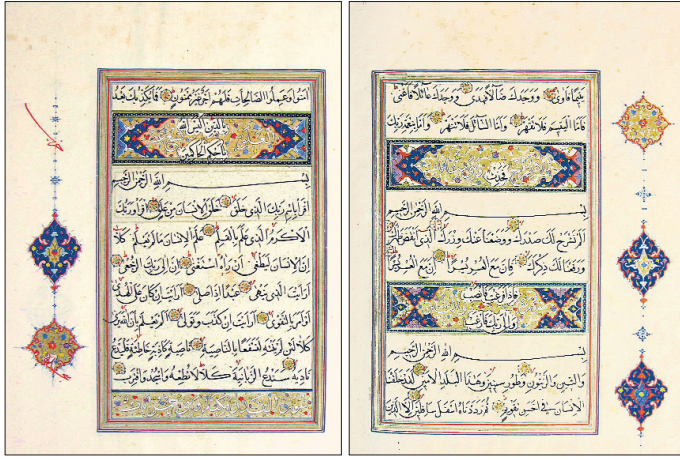 يتيما فاوى ووجدك ضالا فهدى ووجدك عائلا فاغنى
فاما اليتيم فلا تقهر واما السائل فلا تنهر واما بنعمة ربك
فحدث
بسم الله الرحمن الرحيم
الم نشرح لك صدرك ووضعنا عنك وزرك الذي انقض ظهرك
ورفعنا لك ذكرك فان مع العسر يسرا ان مع العسر يسرا
فاذا فرغت فانصب
والى ربك فارغب
بسم الله الرحمن الرحيم
والتين والزيتون وطور سينين وهذا البلد الامين لقد خلقنا
الانسان في احسن تقويم ثم رددناه اسفل سافلين الا الذين
امنوا وعملوا الصالحات فلهم اجر غير ممنون فما يكذبك بعد
بالدين اليس الله
باحكم الحاكمين
بسم الله الرحمن الرحيم
اقرا باسم ربك الذي خلق خلق الانسان من علق اقرا وربك
الاكرم الذي علم بالقلم علم الانسان ما لم يعلم كلا
ان الانسان ليطغى ان راه استغنى ان الى ربك الرجعى
ارايت الذي ينهى عبدا اذا صلى ارايت ان كان على الهدى
او امر بالتقوى ارايت ان كذب وتولى الم يعلم بان الله يرى
كلا لئن لم ينته لنسفعا بالناصية ناصية كاذبة خاطئة فليدع
ناديه سندع الزبانية كلا لا تطعه واسجد واقترب